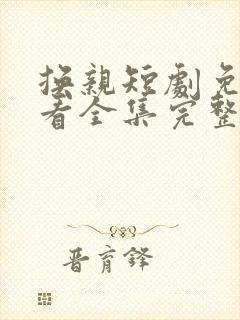 换亲短劇免
看全集完整
晋育鋒